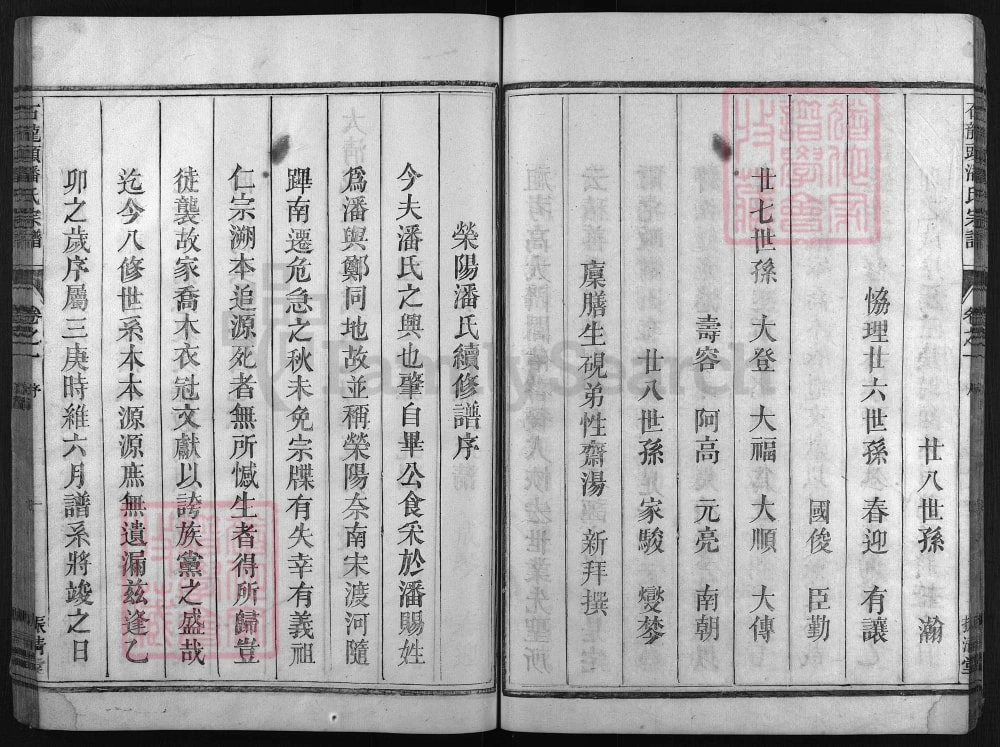 石龍頭潘氏宗譜 卷之一
廿八世孫 瀚
恊理廿六世孫 春迎 有讓
國俊 臣勤
廿七世孫 大登 大福 大順 大傳
壽容 阿高 元亮 南朝
廿八世孫 家駿 燮棼
廩膳生硯弟性齋湯 新拜撰
滎陽潘氏續修譜序
今夫潘氏之興也肇自畢公食采於潘賜姓
爲潘與鄭同地故並稱滎陽奈南宋渡河隨
蹕南遷危急之秋未免宗牒有失幸有義祖
仁宗溯本追源死者無所憾生者得所歸豈
徒襲故家喬木衣冠文獻以誇族黨之盛哉
迄今八修世系本本源源庶無遺漏兹逢乙
卯之歲序屬三庚時維六月譜系將竣之日
石龍頭潘氏宗譜 卷之一 序 一
FamilySearch